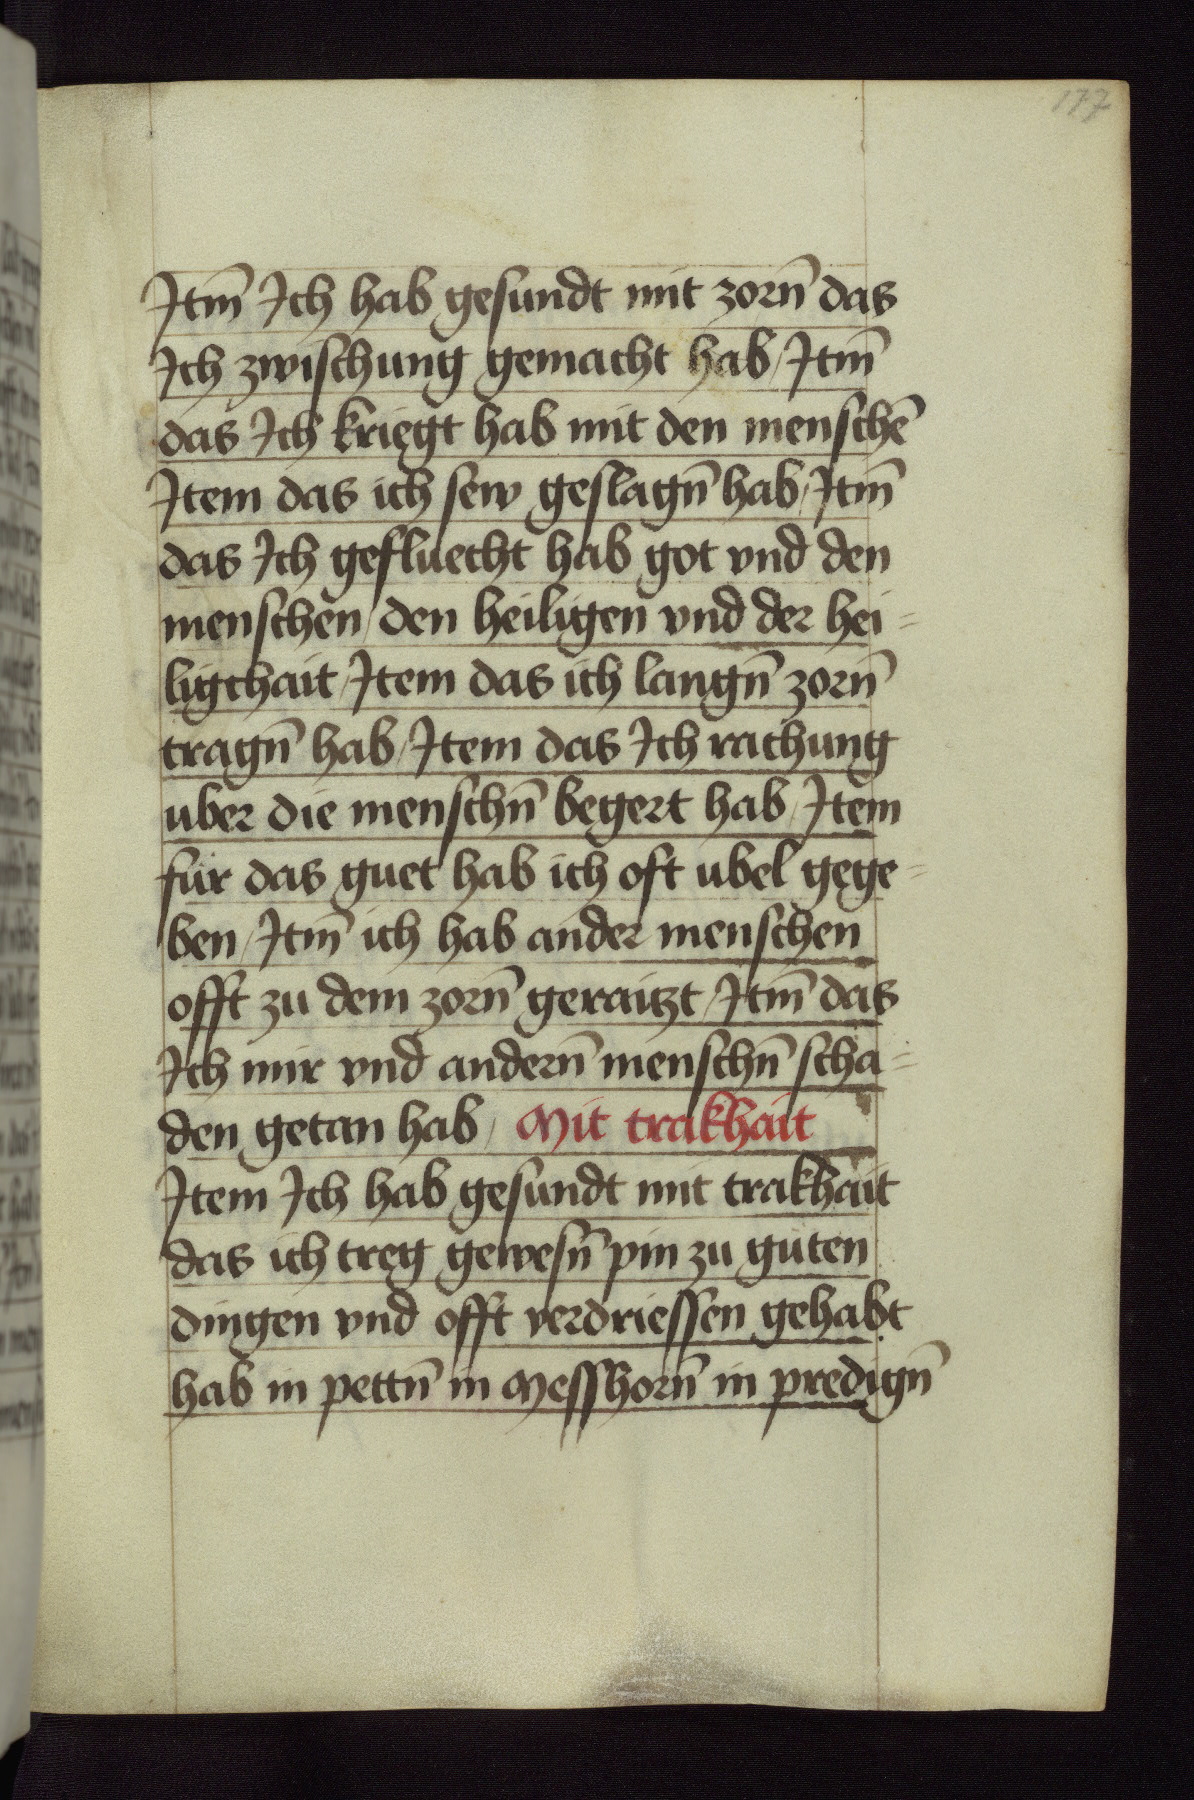 177
Itm̄ Ich hab gesundt mit zorn̄ das
Ich zwischung gemacht hab / Itm̄
das Ich kriegt hab mit den menschē
Item das ich sew geslagn̄ hab / Itm̄
das Ich gefluecht hab got vnd den
menschen / den heiligen vnd der hei=
ligchait / Item das ich langn̄ zorn̄
tragn̄ hab / Item das Ich rachung
uber die menschn̄ begert hab / Item
für das guet hab ich oft ubel gege=
ben / Itm̄ ich hab ander menschen
offt zu dem zorn̄ geraitzt / Itm̄ das
Ich mir vnd andern̄ menschn̄ scha=
den getan hab / Mit trakhait
Item Ich hab gesundt mit trakhait
das ich treg gewesn̄ pin zu guten
dingen vnd offt verdriessen gehabt
hab in pettn̄ in Messhorn̄ in predign̄